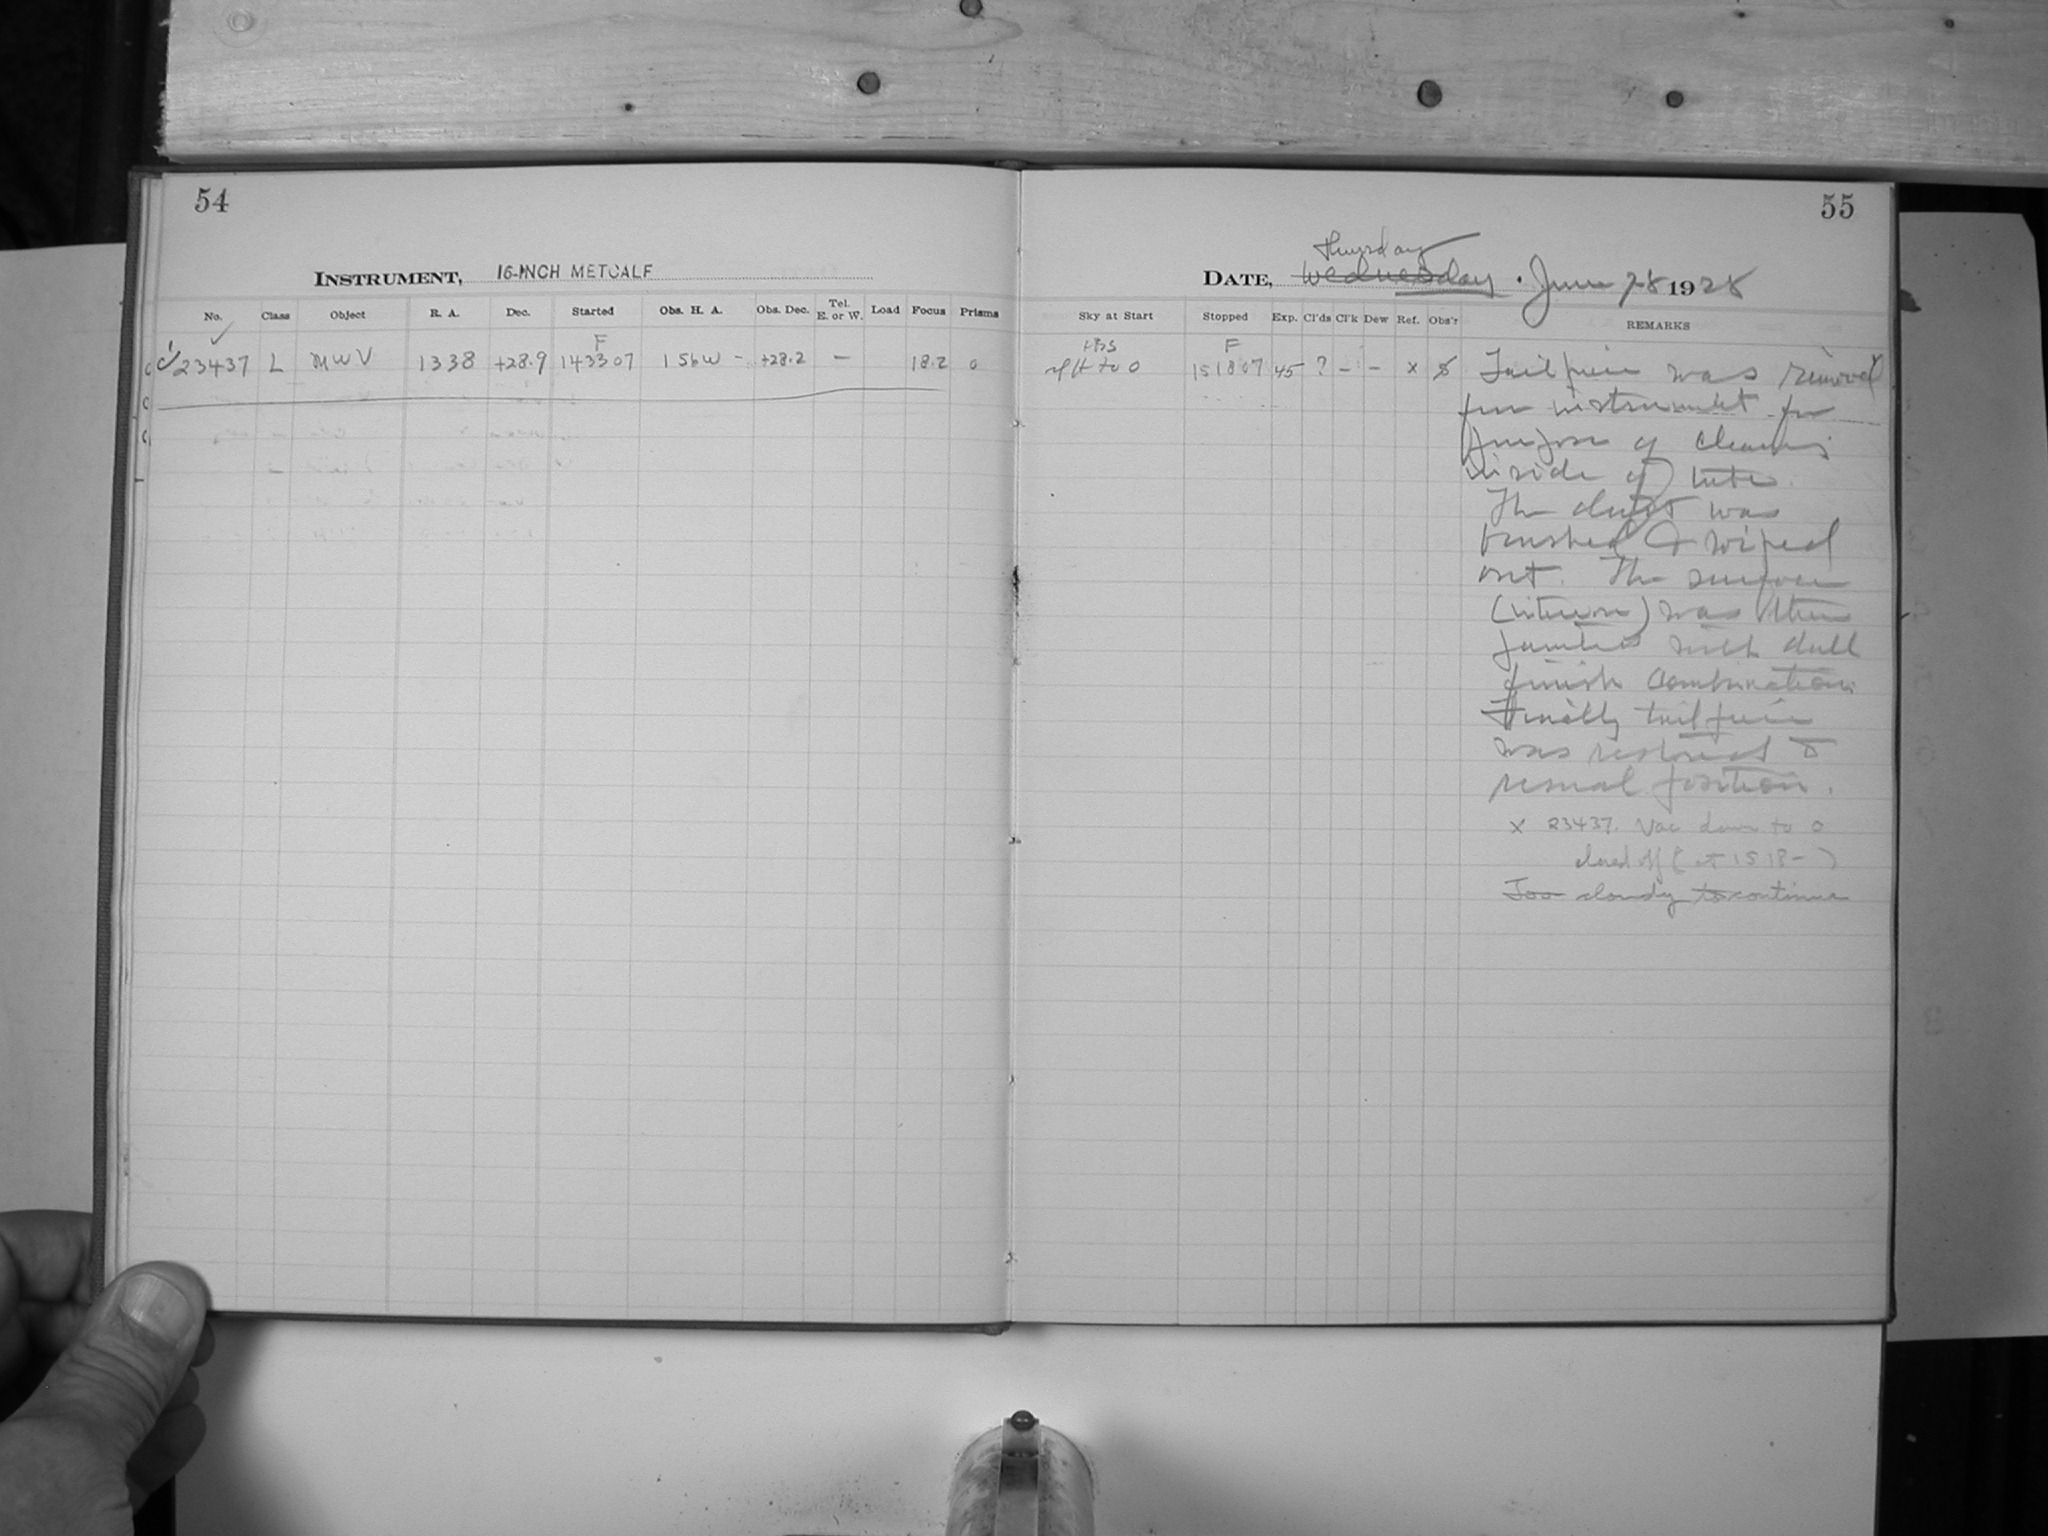 54
INSTRUMENT, 16-INCH METCALF
No. Class Object R. A. Dec. Started Obs. H. A. Obs. Dec. Tel. E. or W. Load Focus Prisms
F
23437 L MWV 1338 +28.9 143307 1 56W - +28.2 — 18.2 0
55
Thursday
DATE, Wednesday. June 28 1928
Sky at Start Stopped Exp. Cl'ds Cl'k Dew Ref. Obs'r REMARKS
F
to 0 151807 45 ? - - x Tailpiece was removed
from instrument for
purpose of cleaning
inside of tube.
The dust was
brushed & wiped
out. The surface
(interior) was then
painted with dull
finish combination
Finally tailpiece
was restored to
usual position.
x 23437. Vac down to 0
closed off (at 1518-)
Too cloudy to continue